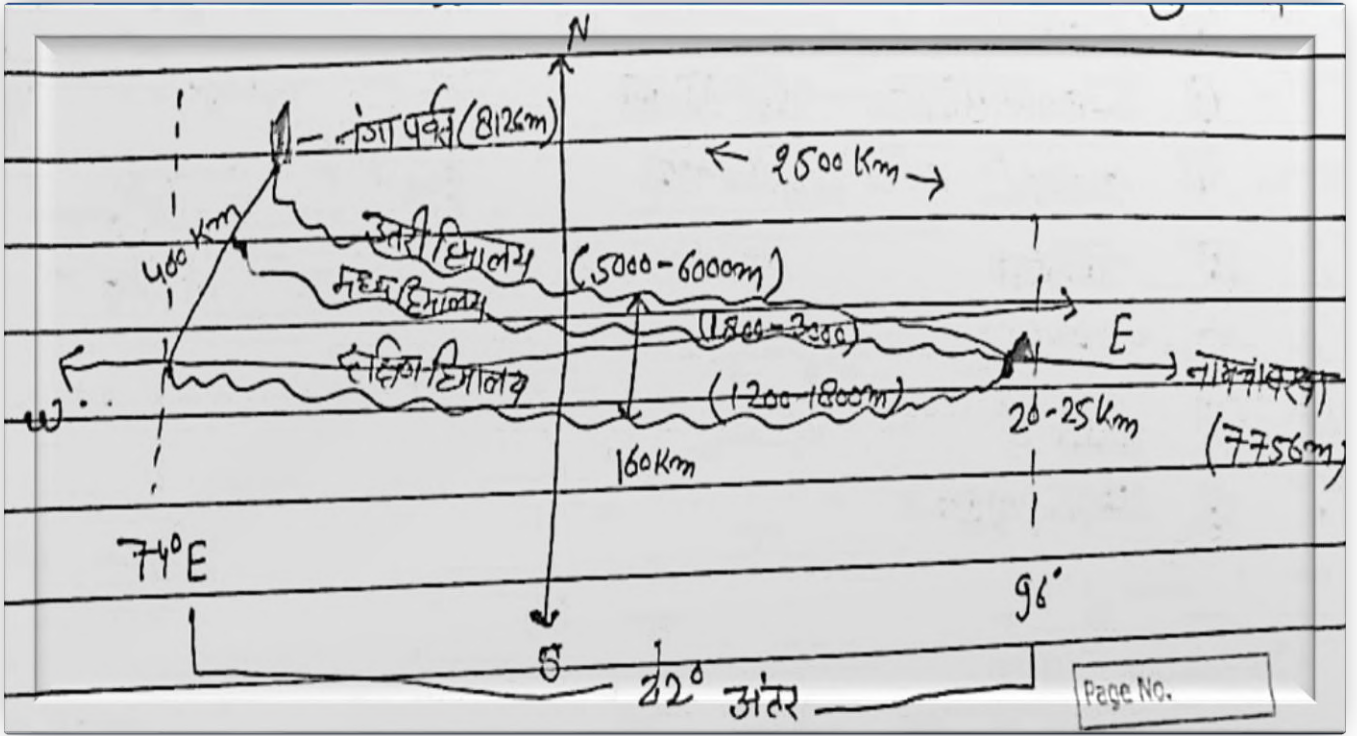 N
नंगा पर्वत (8126m)
← 2500 Km →
400 Km
उत्तरी हिमालय (5000-6000m)
मध्य हिमालय (1800-3000)
E
दक्षिण हिमालय (1200-1800m)
नामचाबरवा
(7756m)
W
20-25Km
160Km
74°E
96°
S
22° अंतर
Page No.